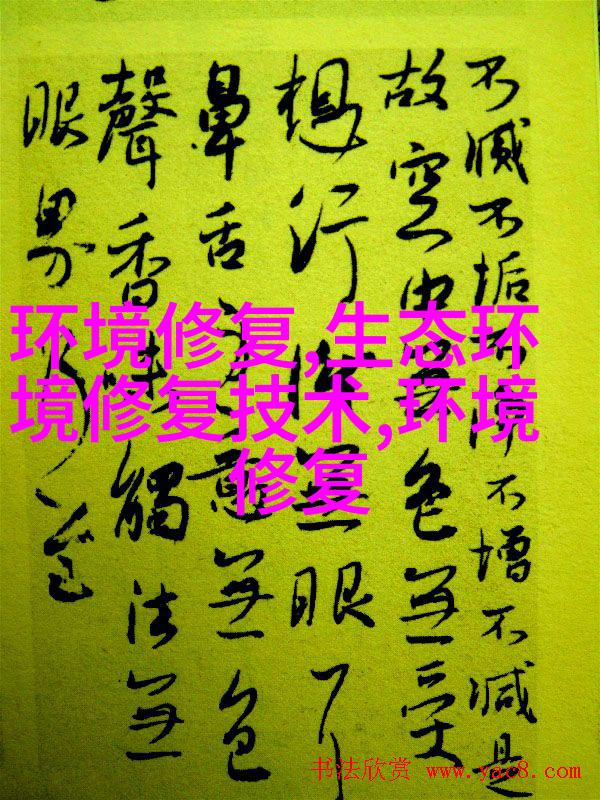 不滅不垢不淨不增不減是
故空中無色無受
想行識無眼耳
鼻舌身意無色
聲香味觸法無
眼界乃至
环境修复,生态环
境修复技术,环境
修复
书法欣赏 www.yac8.com